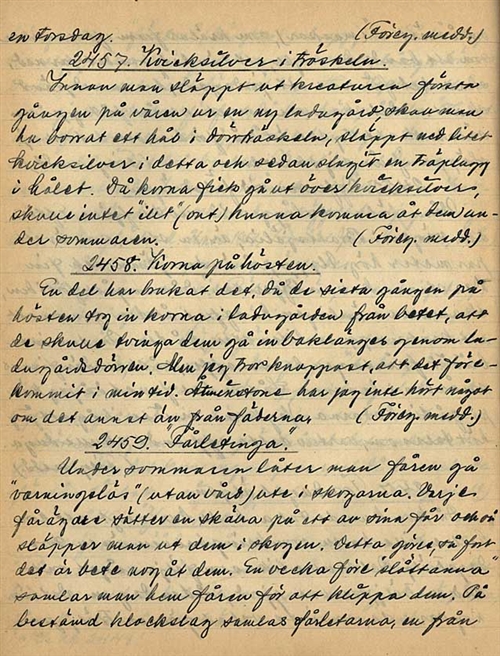 en torsdag. (Föreg. medd.)
2457. Kvicksilver i tröskeln.
Innan man släppt ut kreaturen första
gången på våren ur en ny ladugård, skall man
ha borrat ett hål i dörrtröskeln, släppt ned litet
kvicksilver i detta och sedan slagit en träplugg
i hålet. Då korna fick gå ut över kvicksilvers,
skulle intet "ilt" (ont) kunna komma åt dem un-
der sommaren. (Föreg. medd.)
2458. Korna på hösten.
En del har brukat det, då de sista gången på
hösten tog in korna i ladugården från betet, att
de skulle tvinga dem gå in baklänges genom la-
dugårdsdörren. Men jag tror knappast, att det före-
kommit i min tid. Åtminstone har jag inte hört något
om det annat än från fäderna. (Föreg. medd.)
2459. "Fårletinga"
Under sommaren låter man fåren gå
"varningslös" (utan vård) ute i skogarna. Varje
fårägare sätter en skälla på ett av sina får och så
släpper man ut dem i skogen. Detta göres, så fort
det är bete nog åt dem. En vecka före "slåttanna"
samlar man hem fåren för att klippa dem. På
bestämd klockslag samlas fårletarna, en från